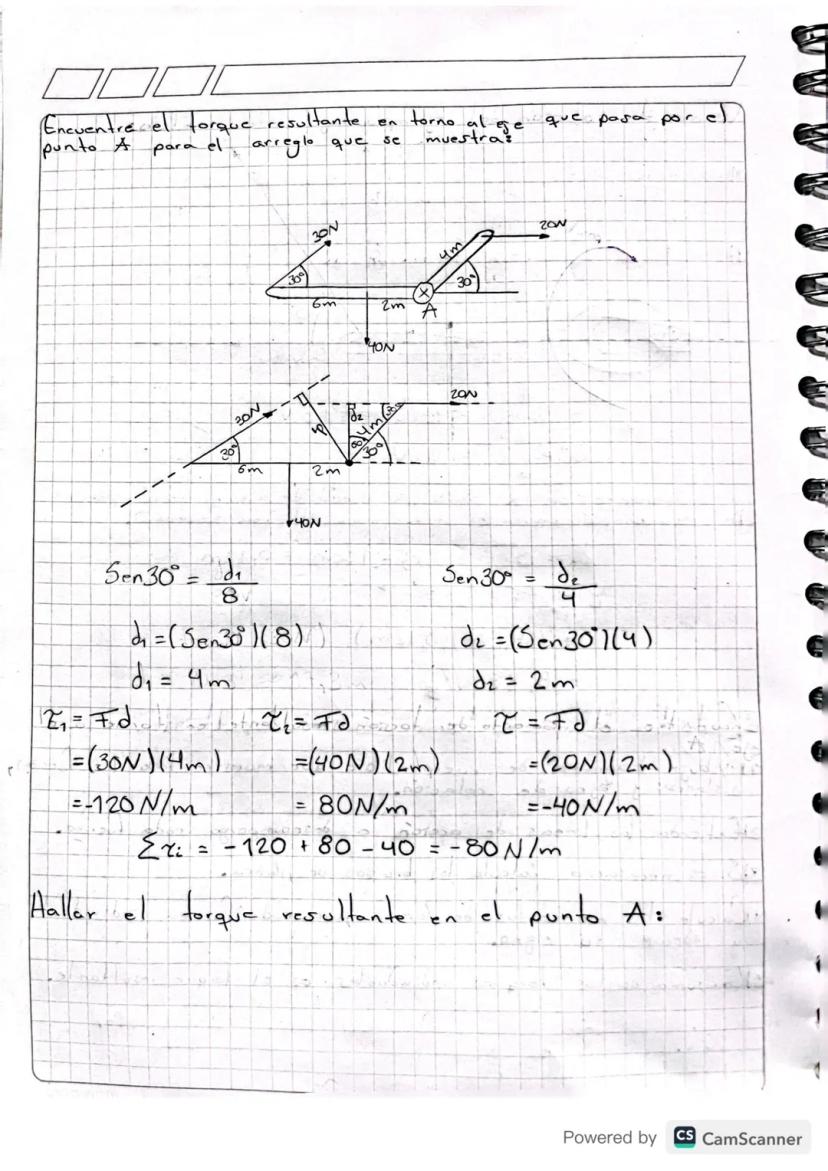 Encuentre el torque resultante en torno al eje que pasa por el
punto A para el arreglo que se muestra:
30N
20N
4m
30°
30°
6m
2m
A
40N
20N
30N
d2
4m
30°
30°
6m
2m
40N
Sen30° = d1/8
Sen30° = d2/4
d1 = (Sen30°)(8)
d2 = (Sen30°)(4)
d1 = 4m
d2 = 2m
τ1 = Fd
τ2 = Fd
τ = Fd
=(30N)(4m)
=(40N)(2m)
=(20N)(2m)
=-120 N/m
= 80N/m
=-40N/m
Στi = -120 + 80 - 40 = -80N/m
Hallar el torque resultante en el punto A:
Powered by CS CamScanner